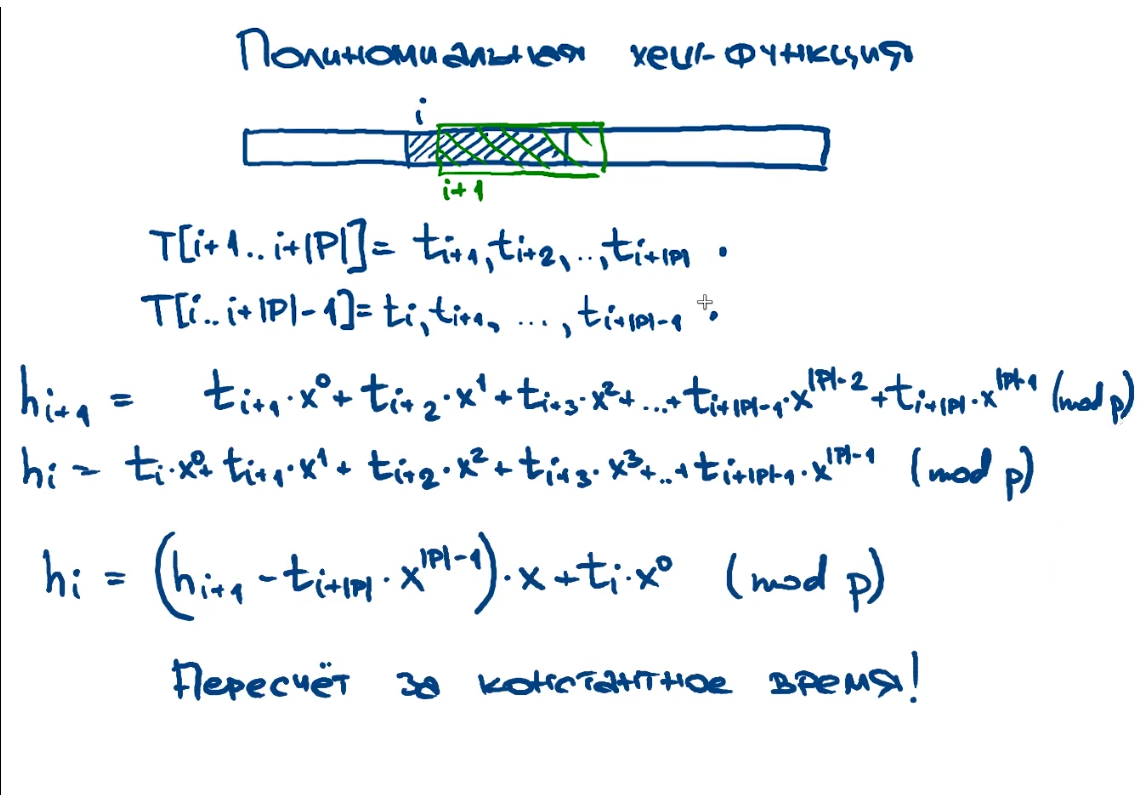 Полиномиальная хеш-функция
i
i+1
T[i+1..i+|P|]= tᵢ₊₁,tᵢ₊₂,..,tᵢ₊|P| .
T[i..i+|P|-1]= tᵢ,tᵢ₊₁, ..., tᵢ₊|P|₋₁ .
hᵢ₊₁ = tᵢ₊₁·x⁰+ tᵢ₊₂·x¹+tᵢ₊₃·x²+...+tᵢ₊|P|₋₁·x^|P|-2+tᵢ₊|P|·x^|P|-1 (mod p)
hᵢ = tᵢ·x⁰+ tᵢ₊₁·x¹+ tᵢ₊₂·x²+tᵢ₊₃·x³+..+tᵢ₊|P|₋₁·x^|P|-1 (mod p)
hᵢ = (hᵢ₊₁ -tᵢ₊|P|·x^|P|-1)·x+tᵢ·x⁰ (mod p)
Пересчёт за константное время!